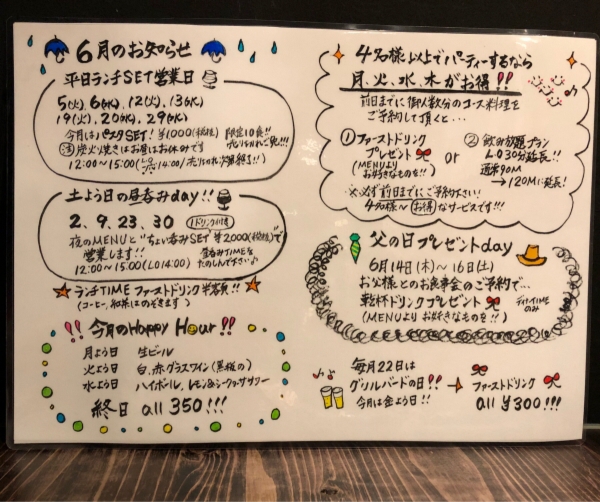 6月のお知らせ
平日ランチSET営業日
5(火), 6(水), 12(火), 13(水)
19(火), 20(水), 29(水)
今月はパスタSET! ¥1000(税抜) 限定10食!!
売りきれご免!!!
注 炭火焼きはお昼はお休みです
12:00～15:00(L.O 14:00/売りきれ次第終了!!)
土よう日の昼呑みday!!
2、9、23、30 1ドリンク付き
夜のMENUと"ちょい呑みSET ¥2000(税抜)"で
営業します!! 昼呑みTIMEを
12:00～15:00(LO14:00) たのしんで下さい♪
ランチTIME ファーストドリンク半額!!
(コーヒー、和茶はのぞきます)
!! 今月のHappy Hour!!
月よう日 生ビール
火よう日 白、赤グラスワイン(黒板の)
水よう日 ハイボール、レモン&シークヮーサーサワー
終日 all 350!!!
4名様以上でパーティーするなら
月、火、水、木がお得!!
前日までに御人数分のコース料理を
ご予約して頂くと…
① ファーストドリンク
プレゼント
(MENUより
お好きなものを!!)
or
② 飲み放題プラン
L.O30分延長!!
通常90M
→120Mに延長!
※必ず前日までにご予約下さい!
4名様～お得なサービスです!!!
父の日プレゼントday
6月14日(木)～16日(土)
お父様とのお食事会のご予約で…
乾杯ドリンクプレゼント
(MENUよりお好きなものを!!)
ディナーTIME
のみ
毎月22日は
グリルバードの日!!
今月は金よう日!!
ファーストドリンク
all ¥300!!!